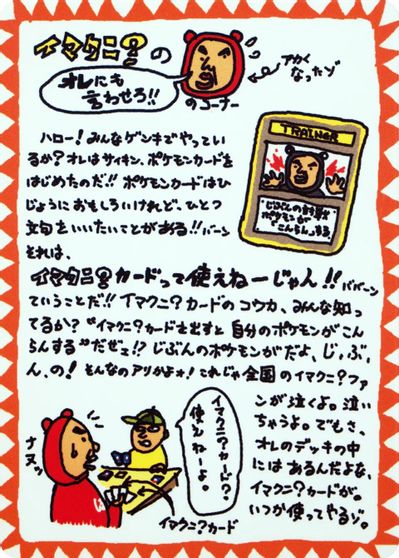 イマクニ?の
オレにも
言わせろ!!
のコーナー
アカく
なったゾ
ハロー!みんなゲンキでやってい
るか?オレはサイキン、ポケモンカードを
はじめたのだ!!ポケモンカードはひ
じょうにおもしろいけれど、ひとつ
文句をいいたいことがある!!バーン
それは、
TRAINER
じぶんの対戦
ポケモンが
「こんらん」する
イマクニ?カードって使えねーじゃん!!ババーン
ていうことだ!!イマクニ?カードのコウカ、みんな知っ
てるか?“イマクニ?カードを出すと自分のポケモンがこん
らんする”だぜェ!?じぶんのポケモンがだよ、じ、ぶ、
ん、の!そんなのアリかよォ!これじゃ全国のイマクニ?ファ
ンが泣くよ。泣い
ちゃうよ。でもさ、
オレのデッキの中
にはあるんだよな、
イマクニ?カードが。
いつか使ってやるゾ。
イマクニ?カード?
使えねーよ。
ナヌッ
イマクニ?カード